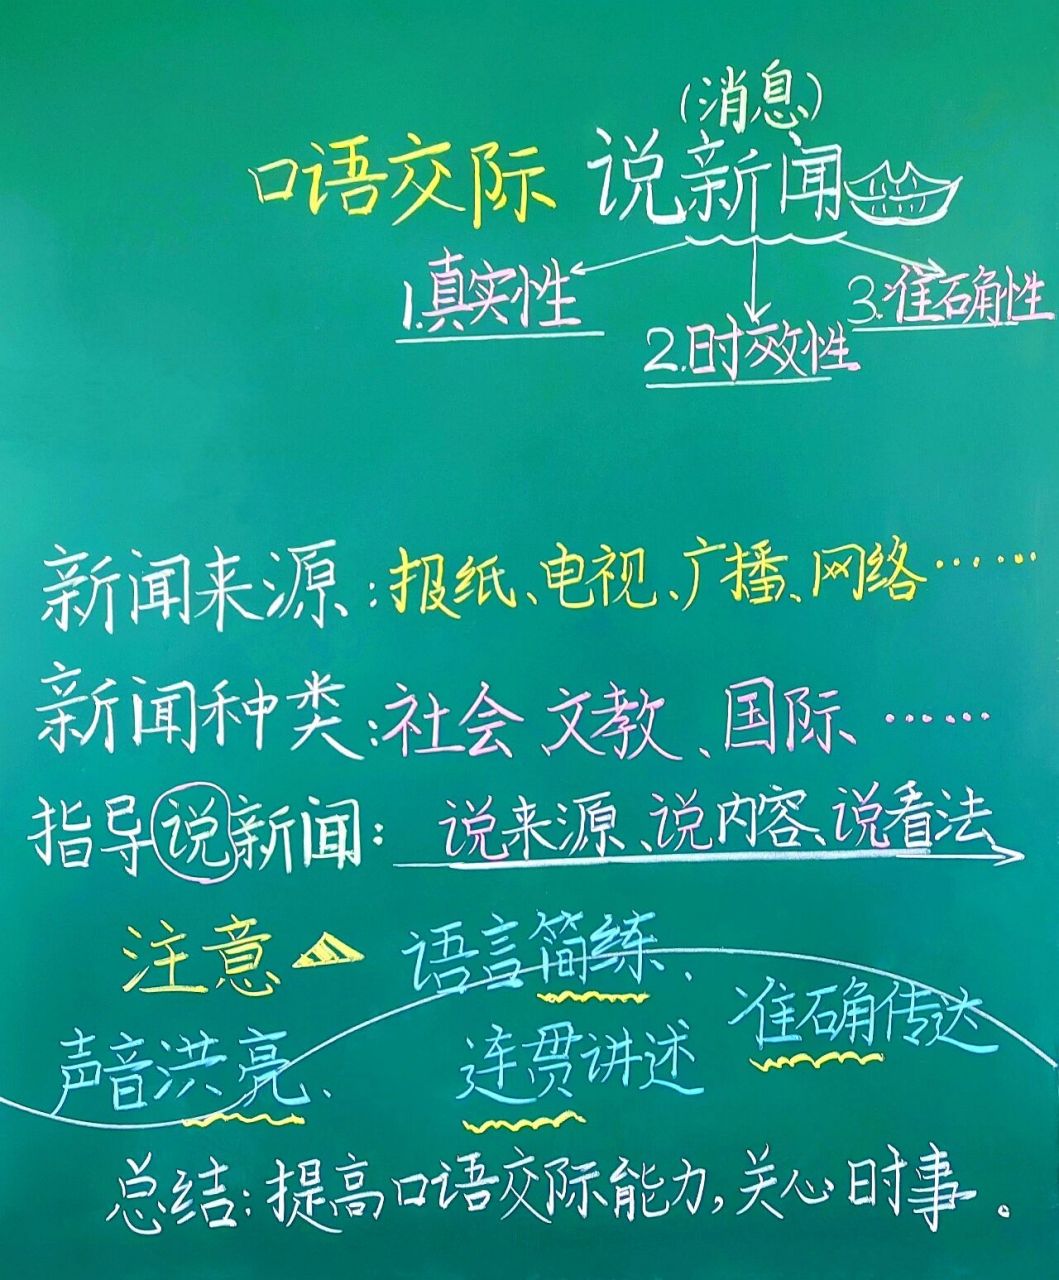 (消息)
口语交际 说新闻
1.真实性
2.时效性
3.准确性
新闻来源:报纸、电视、广播、网络……
新闻种类:社会 文教、国际……
指导说新闻: 说来源、说内容、说看法
注意 语言简练、
声音洪亮、 连贯讲述 准确传达
总结:提高口语交际能力,关心时事。